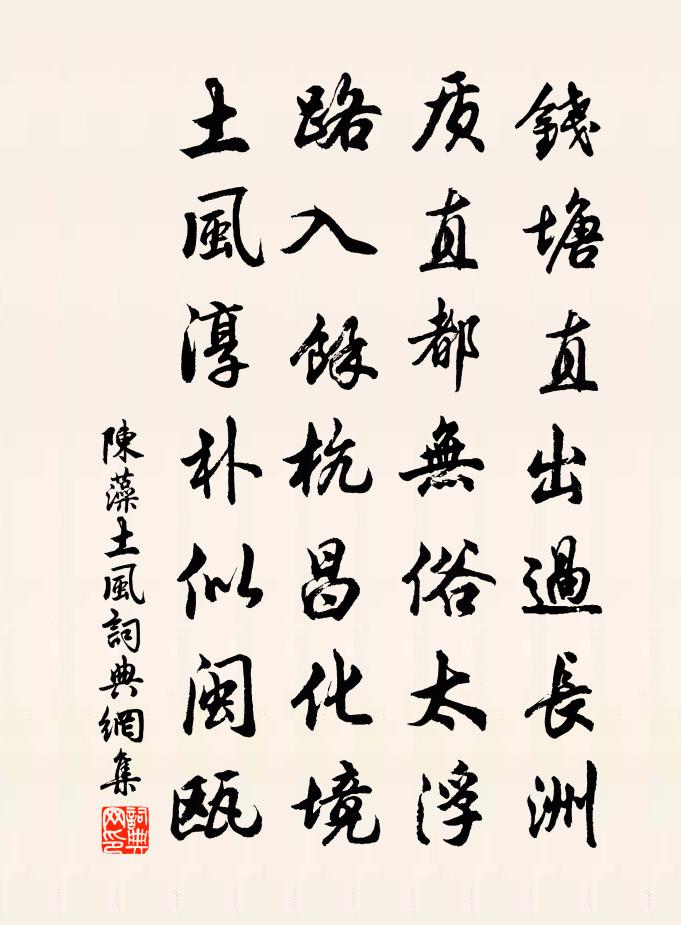 錢塘直出過長洲
质直都無俗太浮
路入餘杭昌化境
土風淳朴似闽瓯
陳藻土風詞典網集
詞典网印